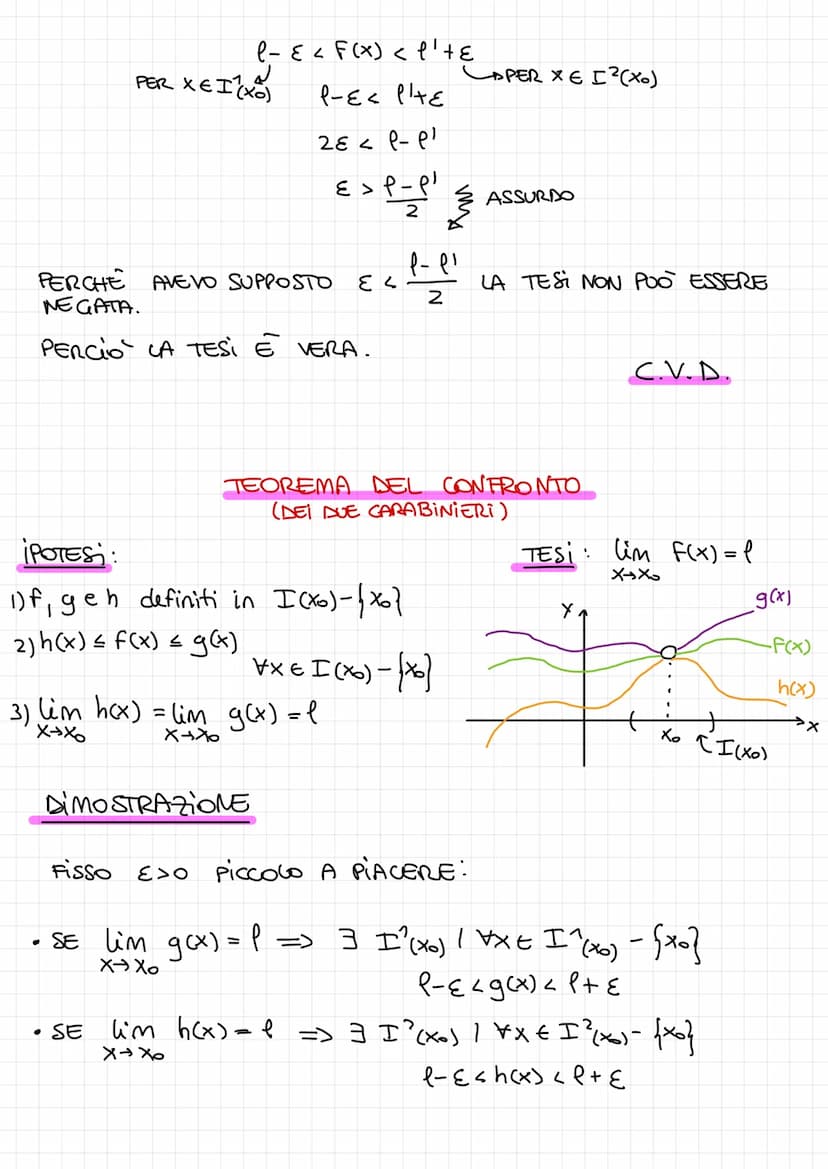 ℓ - ε < F(x) < ℓ' + ε
PER X ∈ I¹(x₀)
→ PER X ∈ I²(x₀)
ℓ-ε < ℓ'+ε
2ε < ℓ-ℓ'
ε > (ℓ-ℓ')/2 ASSURDO
PERCHÉ AVEVO SUPPOSTO ε < (ℓ-ℓ')/2 LA TESI NON PUÒ ESSERE
NEGATA.
PERCIÒ LA TESI È VERA.
C.V.D.
TEOREMA DEL CONFRONTO
(DEI DUE CARABINIERI)
IPOTESI:
1) f, g e h definiti in I(x₀)-{x₀}
2) h(x) ≤ f(x) ≤ g(x)
∀x ∈ I(x₀)-{x₀}
3) lim h(x) = lim g(x) = ℓ
x→x₀ x→x₀
TESI: lim F(x) = ℓ
x→x₀
Y
g(x)
F(x)
h(x)
x
x₀
I(x₀)
DIMOSTRAZIONE
FISSO ε>0 PICCOLO A PIACERE:
• SE lim g(x) = ℓ => ∃ I¹(x₀) / ∀x ∈ I¹(x₀) - {x₀}
x→x₀
ℓ-ε < g(x) < ℓ+ε
• SE lim h(x) = ℓ => ∃ I²(x₀) / ∀x ∈ I²(x₀) - {x₀}
x→x₀
ℓ-ε < h(x) < ℓ+ε